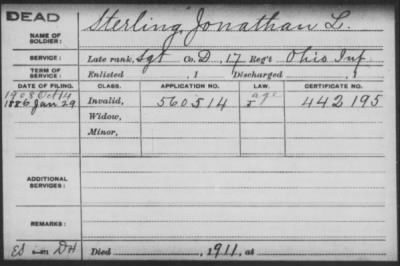 DEAD
Sterling, Jonathan L.
NAME OF SOLDIER:
SERVICE: Late rank, Sgt Co. D, 17 Reg't Ohio Inf
TERM OF SERVICE: Enlisted , 1 Discharged , 1
DATE OF FILING. CLASS. APPLICATION NO. LAW. CERTIFICATE NO.
1908 Oct 14 age
1886 Jan 29 Invalid, 560514 442195
Widow,
Minor,
ADDITIONAL SERVICES:
REMARKS:
Died , 1911, at